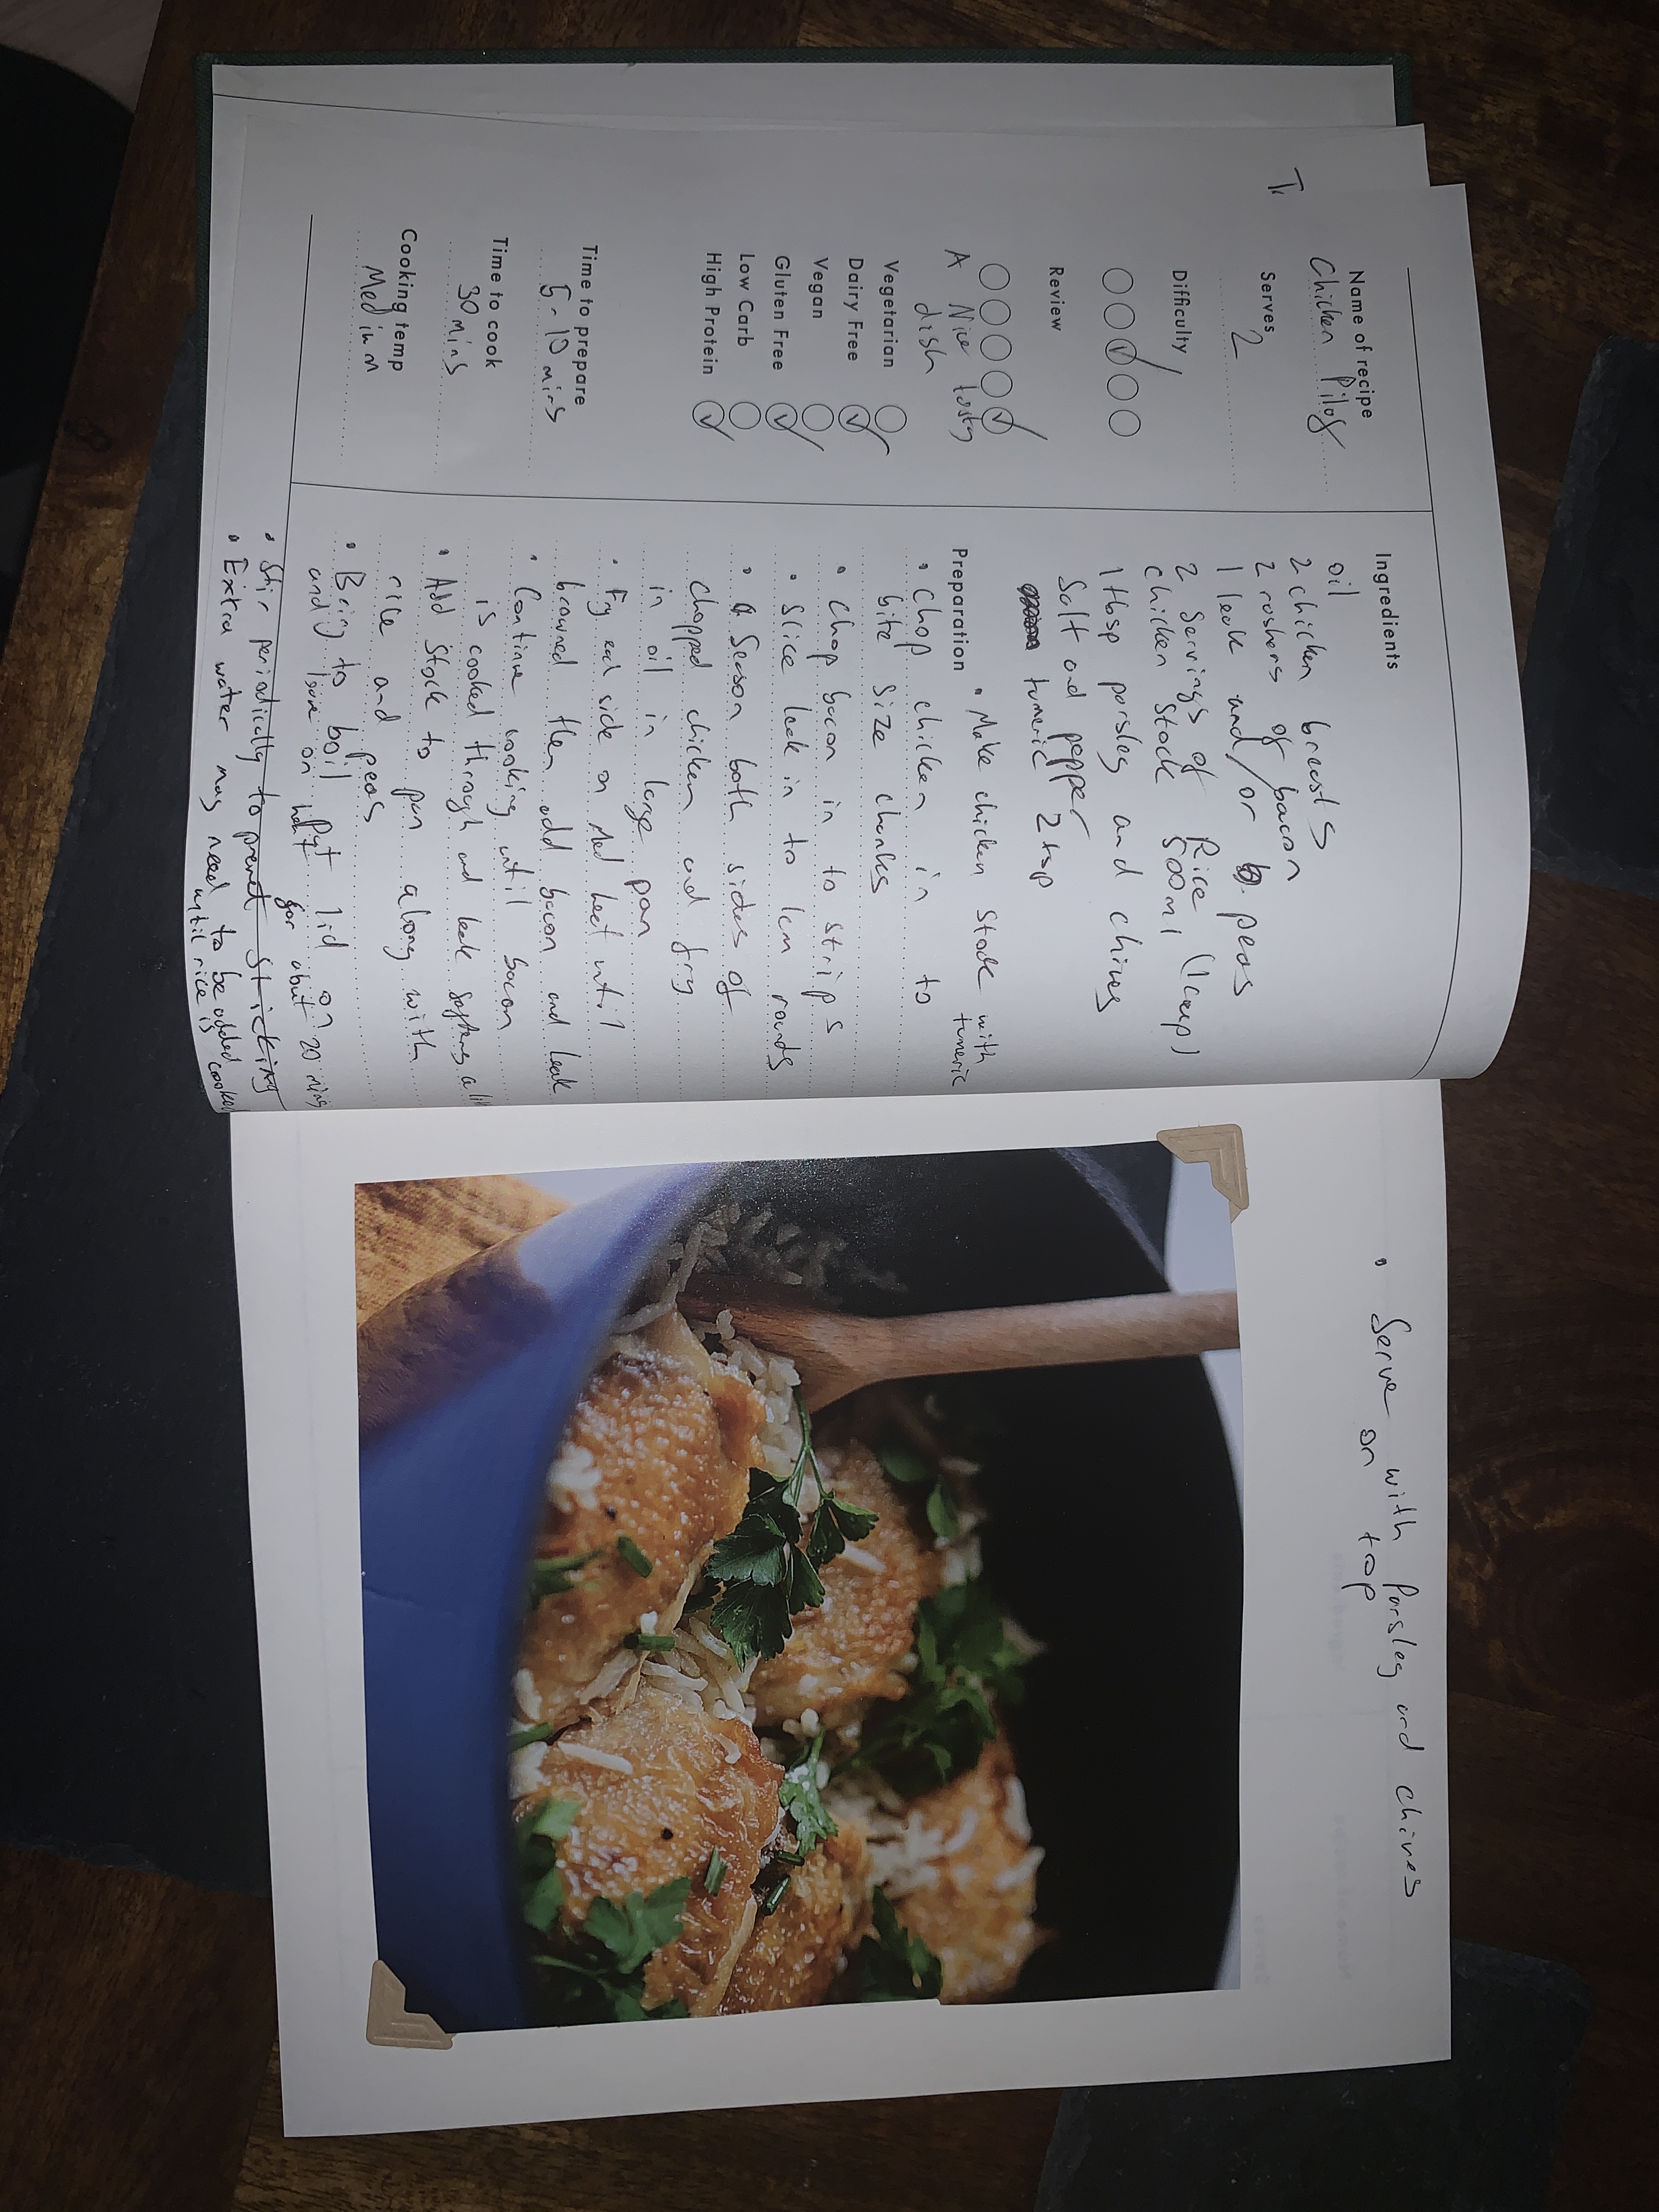 Name of recipe
Chicken Pilof
Serves
2
Difficulty
Review
A Nice tasty
dish
Vegetarian
Dairy Free
Vegan
Gluten Free
Low Carb
High Protein
Time to prepare
5-10 mins
Time to cook
30 mins
Cooking temp
Medium
Ingredients
oil
2 chicken breasts
2 rashers of bacon
1 leek and/or peas
2 Servings of Rice (1 cup)
chicken stock 500ml
1 tbsp parsley and chives
Salt and pepper
tumeric 2 tsp
Preparation
• Make chicken stock with
tumeric
• Chop chicken in to
bite size chunks
• Chop bacon in to strips
• Slice leek in to 1cm rounds
• Season both sides of
chopped chicken and fry
in oil in large pan
• Fry each side on Med heat until
browned then add bacon and leek
• Continue cooking until bacon
is cooked through and leek softens a
• Add Stock to pan along with
rice and peas
• Bring to boil Put lid on
and leave on heat for about 20 mins
• Stir periodically to prevent sticking
• Extra water may need to be added
until rice is cooked
• Serve with Parsley and chives
on top